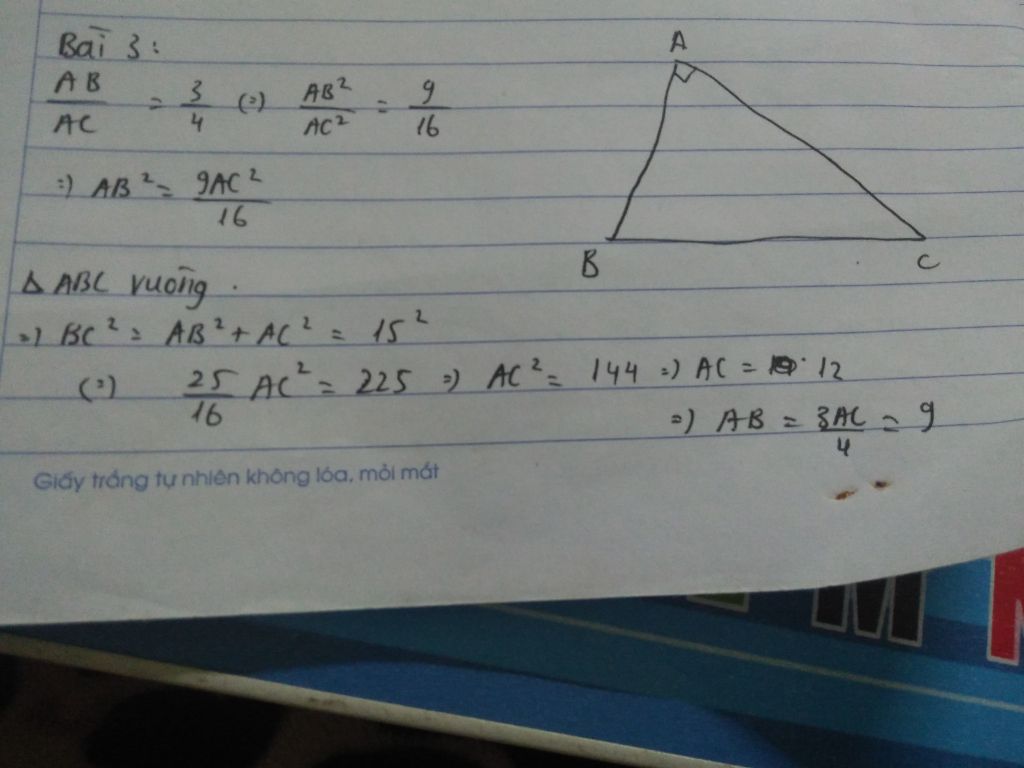 Bài 3:
AB/AC = 3/4 (=) AB²/AC² = 9/16
=) AB² = 9AC²/16
Δ ABC vuông.
=) BC² = AB² + AC² = 15²
(=) 25/16 AC² = 225 =) AC² = 144 =) AC = 12
=) AB = 3AC/4 = 9
A
B
C
Giấy trắng tự nhiên không lóa, mỏi mắt
M